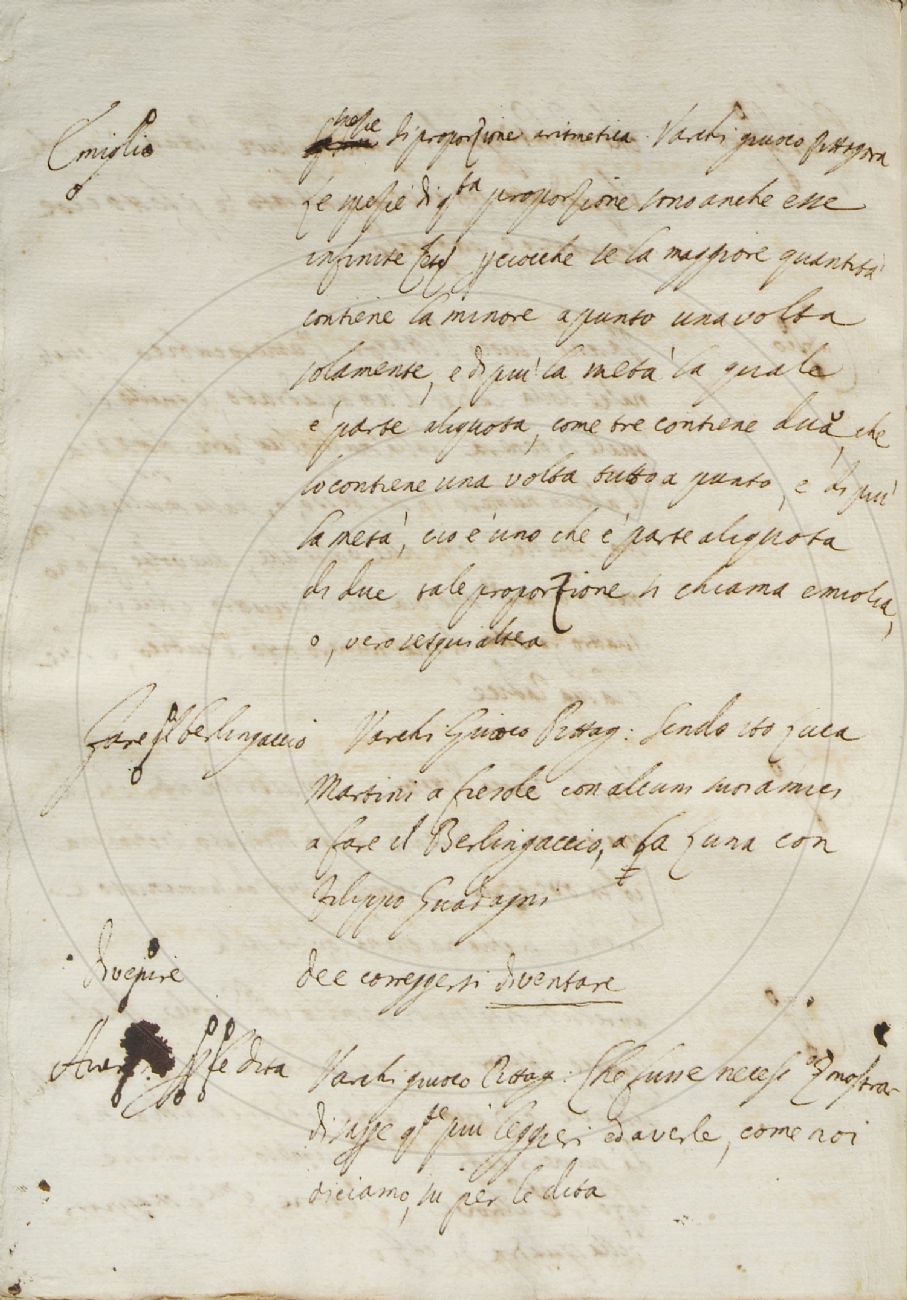 Emiglio
spesie di proporzione aritmetica. Varchi giuoco Pittagora
Le spesie di q.ta proporzione sono anche esse
infinite perciocche se la maggiore quantità
contiene la minore apunto una volta
solamente, e di più la metà la quale
è parte aliquota, come tre contiene dua, che
lo contiene una volta tutto a punto, e di più
la metà, cio è uno che è parte aliquota
di due tale proporzione si chiama emiolia,
o, vero sesquialtera
Fare il berlingaccio
Varchi Giuoco Pittag: Sendo ito Luca
Martini a fiesole con alcuni suoi amici
a fare il Berlingaccio, a la Luna con
Filippo Guadagni
divenire
dee correggersi diventare
Aver per le dita
Varchi giuoco Pittag: Che fusse necess.o mostrar
di sapere q.te più leggieri ed averle, come noi
diciamo, su per le dita